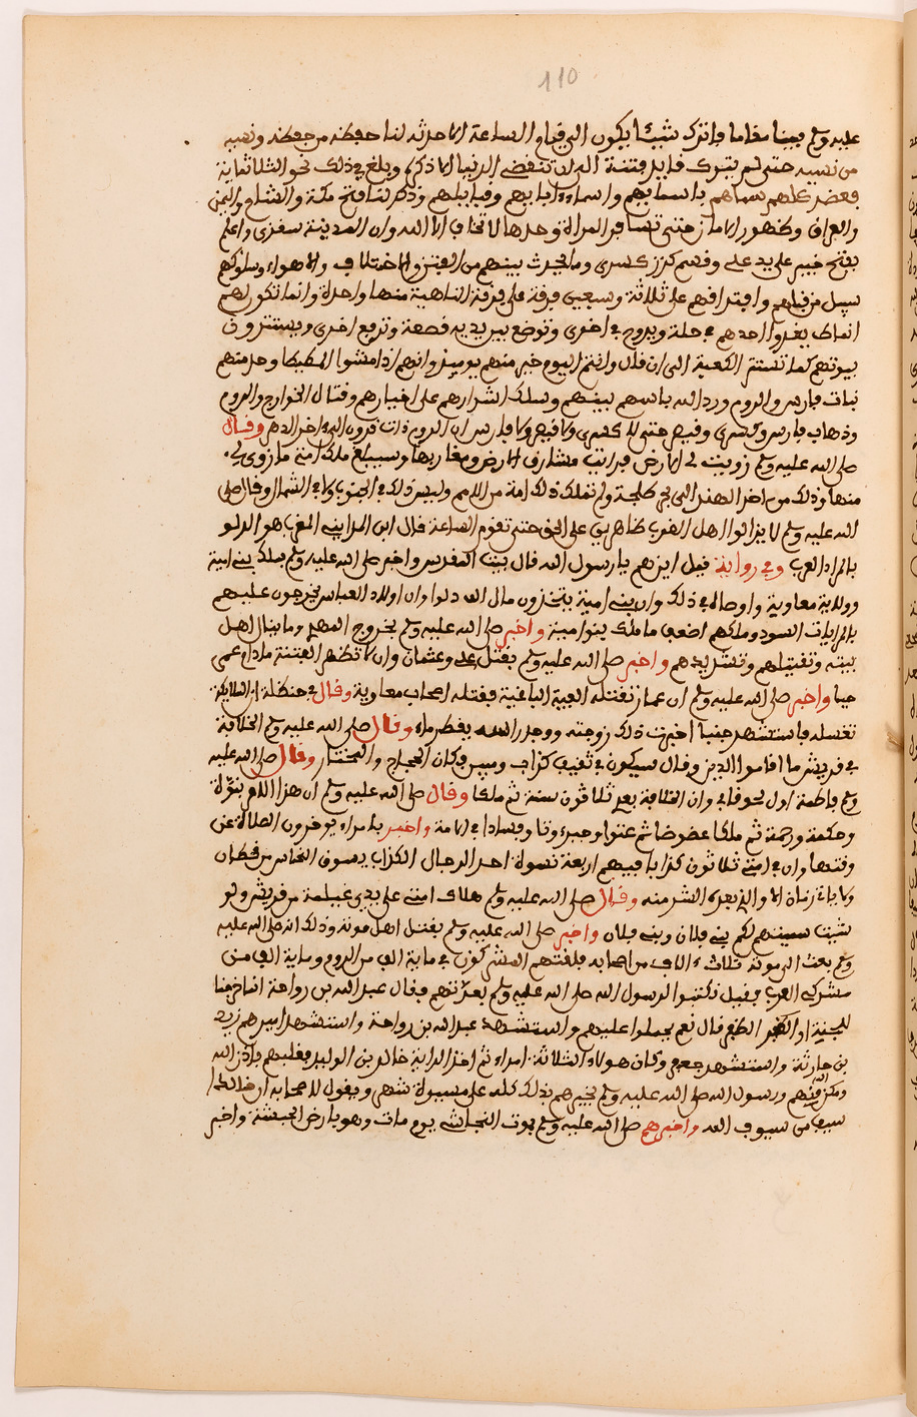 110
عليه وسلم فينا مقاما فما ترك شيئا يكون الى قيام الساعة الا حدثه لنا حفظه من حفظه ونسيه
من نسيه حتى لم يترك قايد فتنة الى ان تنقضي الدنيا الا ذكره وبلغ في ذلك نحو الثلاثماية
باسمايهم واسماء ابايهم وقبايلهم وذكر لنا فتح مكة والشام واليمن
والعراق وظهور الامن حتى تسافر المراة وحدها لا تخاف الا الله وان المدينة ستغزى واعلم
بفتح خيبر على يد علي وقسم كنز كسرى وما يحدث بينهم من الفتن والاختلاف والاهواء وسلوكهم
سبيل من قبلهم وافتراقهم على ثلاثة وسبعين فرقة الناجية منها واحدة وانها تكون لهم
انماط يغدوا احدهم في حلة ويروح في اخرى وتوضع بين يديه قصعة وترفع اخرى ويسترون
بيوتهم كما تستر الكعبة الى ان قال وانتم اليوم خير منهم يوميذ وانهم اذا مشوا المطيطا وخدمتهم
بنات فارس والروم ورد الله باسهم بينهم وسلط اشرارهم على اخيارهم وقتال الخوارج والروم
وذهاب فارس وكسرى وقيصر حتى لا كسرى ولا قيصر ولا فارس ان الروم ذات قرون الى اخر الدهر وقال
صلى الله عليه وسلم زويت لي الارض فرايت مشارق الارض ومغاربها وسيبلغ ملك امتي ما زوي لي
منها وذلك من اخر الهند الى بحر طنجة ولم تملك ذلك امة من الامم وليس ذلك في الجنوب ولا في الشمال وقال صلى
الله عليه وسلم لا يزالوا اهل الغرب ظاهرين على الحق حتى تقوم الساعة قال ابن المديني الغرب هو الدلو
بالمراد العرب وفي رواية قيل اين هم يا رسول الله قال بيت المقدس واخبر صلى الله عليه وسلم بملك بني امية
وولاية معاوية واوصاه في ذلك وان بني امية يتخذون مال الله دولا وان اولاد العباس يخرجون عليهم
بالرايات السود وملكهم اضعاف ما ملك بنوا امية واخبر صلى الله عليه وسلم بخروج المهدي وما ينال اهل
بيته وتقتيلهم وتشريدهم واخبر صلى الله عليه وسلم بقتل علي وعثمان وان لا تظهر الفتنة ما دام عمر
حيا واخبر صلى الله عليه وسلم ان عمارا تقتله الفية الباغية فقتله اصحاب معاوية وقال في حنظلة ان الملايكة
تغسله فاستشهد جنبا اخبرت ذلك زوجته ووجد راسه يقطر ماء وقال صلى الله عليه وسلم الخلافة
في قريش ما اقاموا الدين وقال سيكون في ثقيف كذاب ومبير فكان الحجاج والمختار وقال صلى الله عليه
وسلم فاطمة اول لحوقا بي وان الخلافة بعدي ثلاثون سنة ثم ملكا وقال صلى الله عليه وسلم ان هذا الامر نبوة
وحكمة ورحمة ثم ملكا عضوضا ثم عتوا وجبروتا وفسادا في الامة واخبر بامراء يوخرون الصلاة عن
وقتها وان في امتي ثلاثون كذابا فيهم اربعة نسوة احد الرجال الكذاب يسوق الناس من قحطان
ولا ياتي زمان الا والذي بعده اشر منه وقال صلى الله عليه وسلم هلاك امتي على يدي غيلمة من قريش ولو
شيت سميتهم لكم بني فلان وبني فلان واخبر صلى الله عليه وسلم بقتل اهل موتة وذلك انه صلى الله عليه
وسلم بعث الى موتة ثلاثة الاف من اصحابه فلقتهم المشركون في ماية الف من الروم وماية الف من
مشركي العرب فقيل نكتبوا لرسول الله صلى الله عليه وسلم بعدتهم فقال عبد الله بن رواحة انما خرجنا
للجنة او الظفر قال نعم فحملوا عليهم واستشهد عبد الله بن رواحة واستشهد اميرهم زيد
بن حارثة واستشهد جعفر وكان هولاء الثلاثة امراء ثم اخذ الراية خالد بن الوليد فغلبهم باذن الله
ومكن الله منهم ورسول الله صلى الله عليه وسلم يخبرهم بذلك كله على مسيرة شهر ويقول لاصحابه ان خالدا
سيف من سيوف الله واخبرهم صلى الله عليه وسلم بموت النجاشي يوم مات وهو بارض الحبشة واخبر